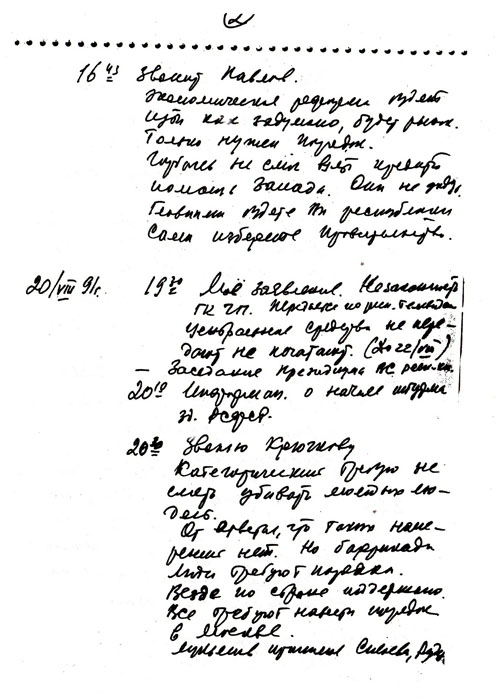 2
16 45 Звонит Павлов.
Экономические реформы будет
идти как задумано, будет рынок.
Только нужен порядок.
Горбачев не смог взять кредиты
помощь Запада. Они не дадут.
Главными будете Вы республики
Сами изберете Правительство.
20/VIII 91г. 19 30 Моё заявление. Незаконность
ГКЧП.
Центральные средства не пере-
дают не печатают. (до 22/VIII)
— Заседание Президиума ВС
20 10 Информац. о начале штурма
зд. РСФСР.
20 30 Звоню Крючкову
Категорически требую не
сметь убивать местных лю-
дей.
Он ответил, что таких наме-
рений нет. Но баррикады
люди требуют порядка.
Везде по стране поддержано.
Все требуют навести порядок
в Москве.
Силаев, Руц.